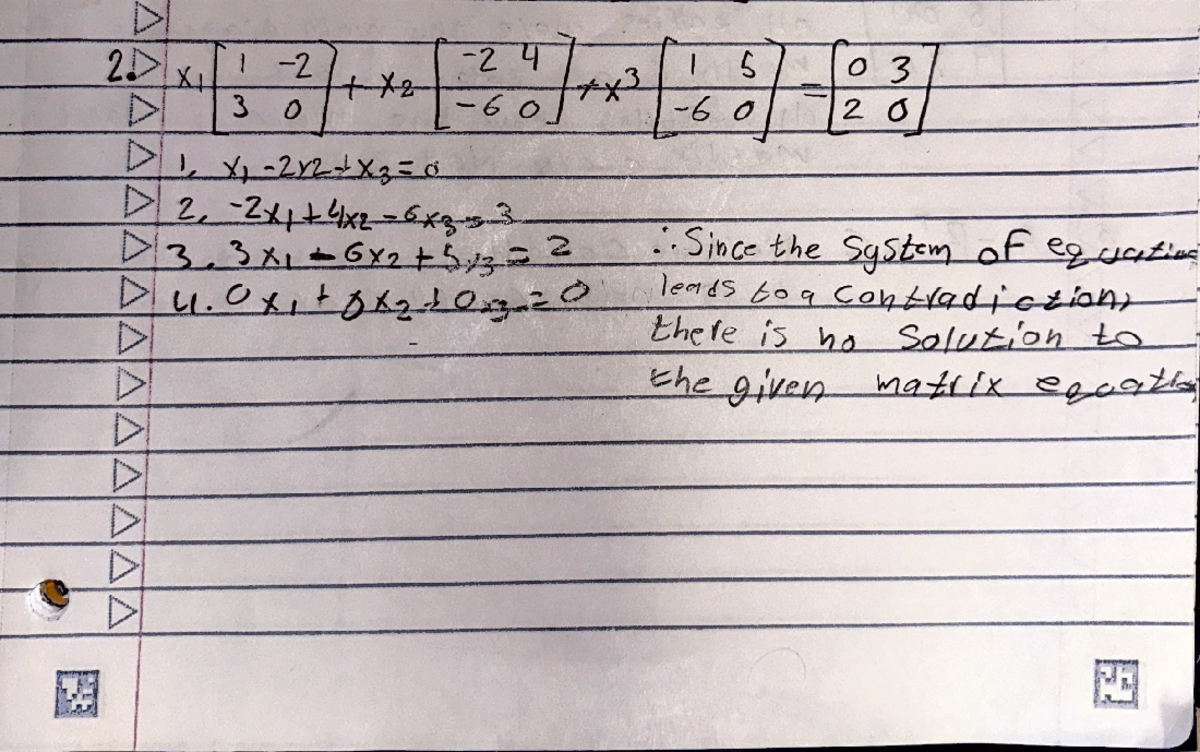 2. x₁ [1 -2; 3 0] + x₂ [-2 4; -6 0] + x³ [1 5; -6 0] = [0 3; 2 0]
1. x₁ - 2x2 + x₃ = 0
2. -2x₁ + 4x₂ - 6x₃ = 3
3. 3x₁ - 6x₂ + 5x₃ = 2
4. 0x₁ + 0x₂ + 0x₃ = 0
∴ Since the System of equations
leads to a contradiction,
there is no Solution to
the given matrix equation